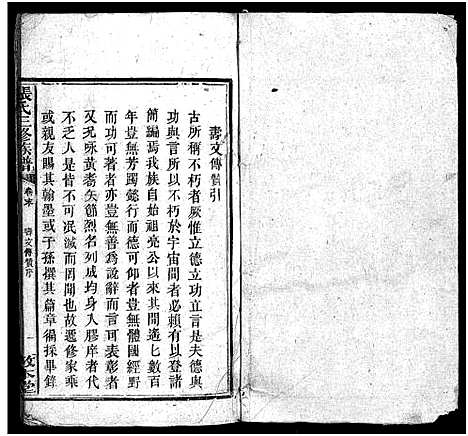 壽文傳贊引
古所稱不朽者厥惟立德立功立言是夫德與
功與言所以不朽於宇宙間者必賴有以登諸
簡編焉我族自始祖亮公以來其間遙遙數百
年豈無芳躅懿行而德可仰者豈無體國經野
而功可著者亦豈無善為說辭而言可表彰者
又况咏黃耈矢節烈名列成均身入膠庠者代
不乏人是皆不可泯滅而罔聞也故週修家乘
或親友賜其翰墨或子孫撰其篇章徧採畢錄
張氏三修族譜
卷末
壽文傳贊序
一
敦本堂